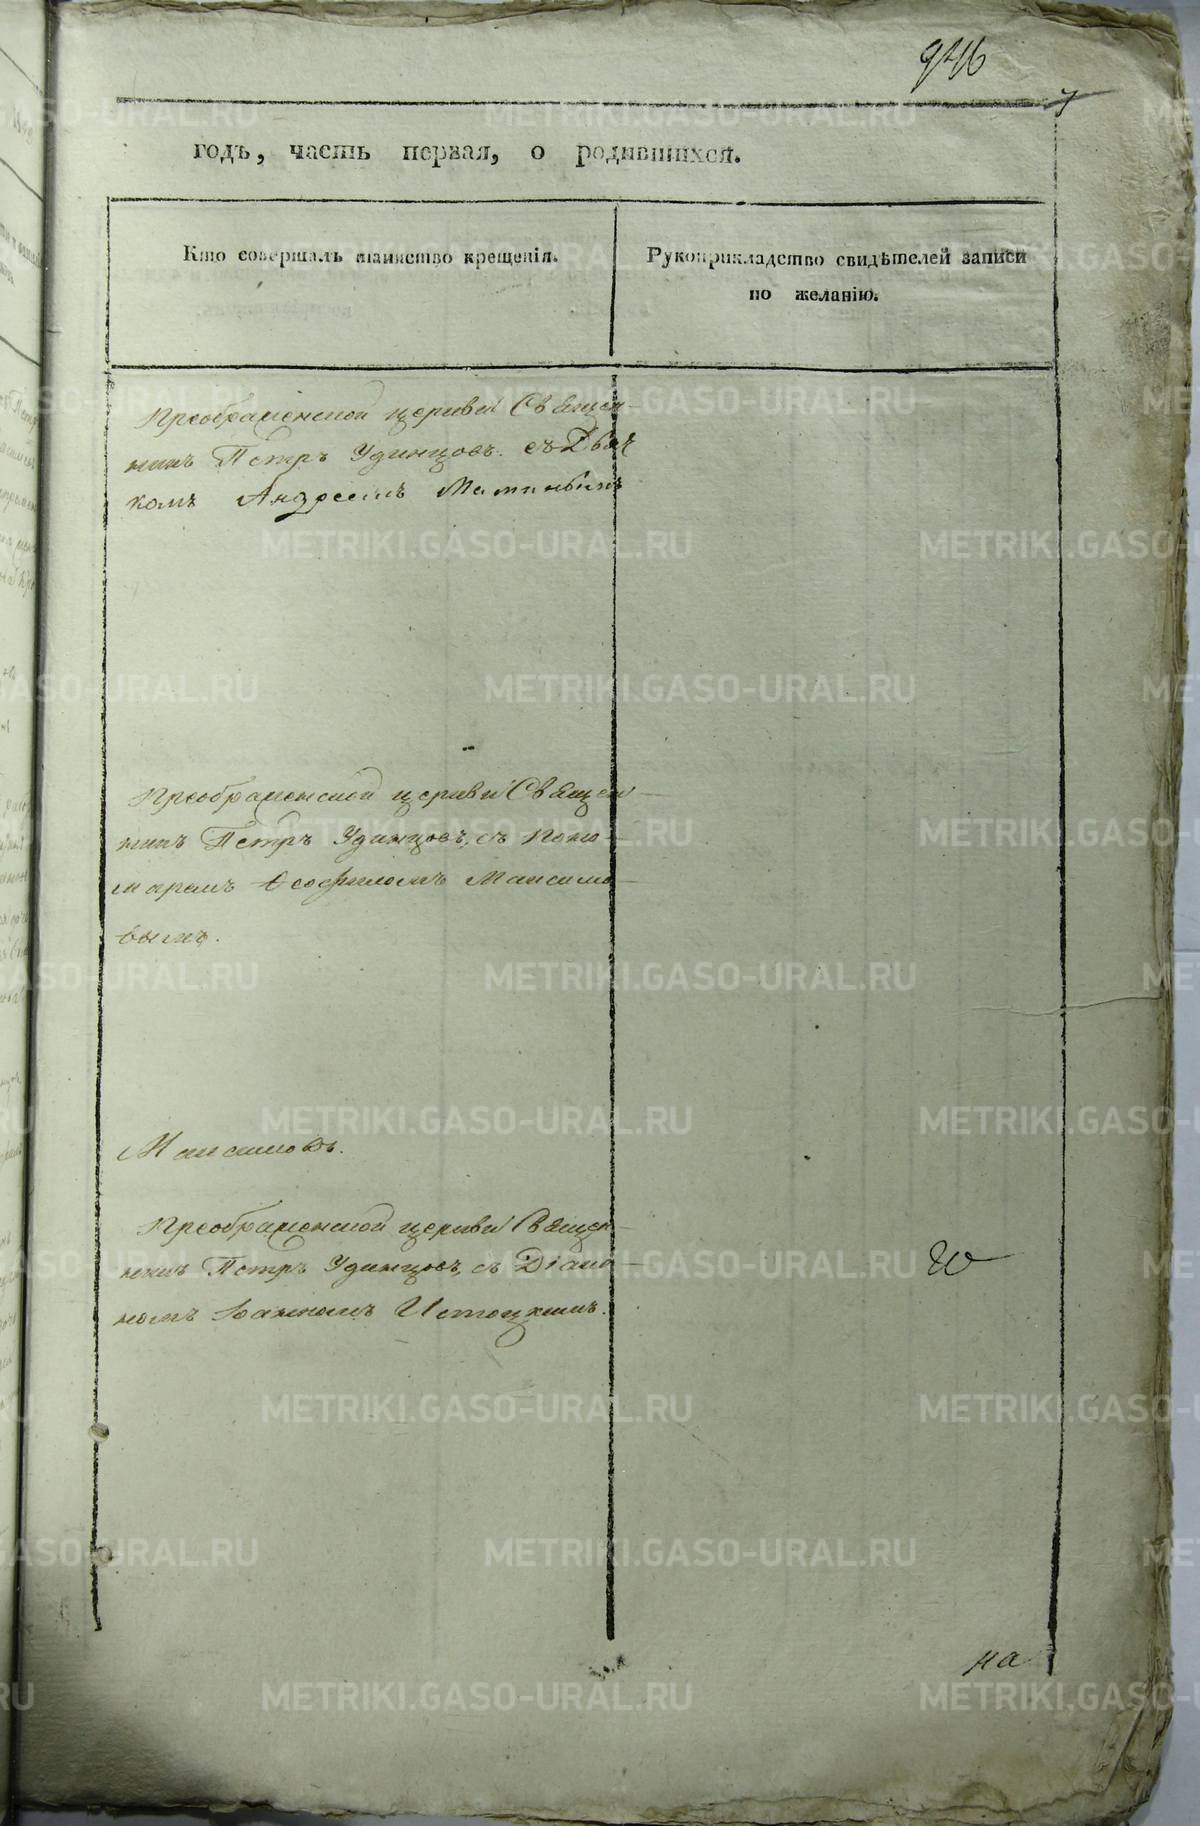 946
7
годъ, часть первая, о родившихся.
Кто совершалъ таинство крещенія.
Рукоприкладство свидѣтелей записи
по желанію.
Преображенской церкви Священ-
никъ Петръ Удинцовъ. съ Дьяч
комъ Андреемъ Маминымъ
Преображенской церкви Священ-
никъ Петръ Удинцовъ, съ Поно-
маремъ Ѳеофиломъ Максимо-
вымъ.
Максимовъ.
Преображенской церкви Священ-
никъ Петръ Удинцовъ, съ Діако-
номъ Іоанномъ Истоцкимъ.
на
METRIKI.GASO-URAL.RU